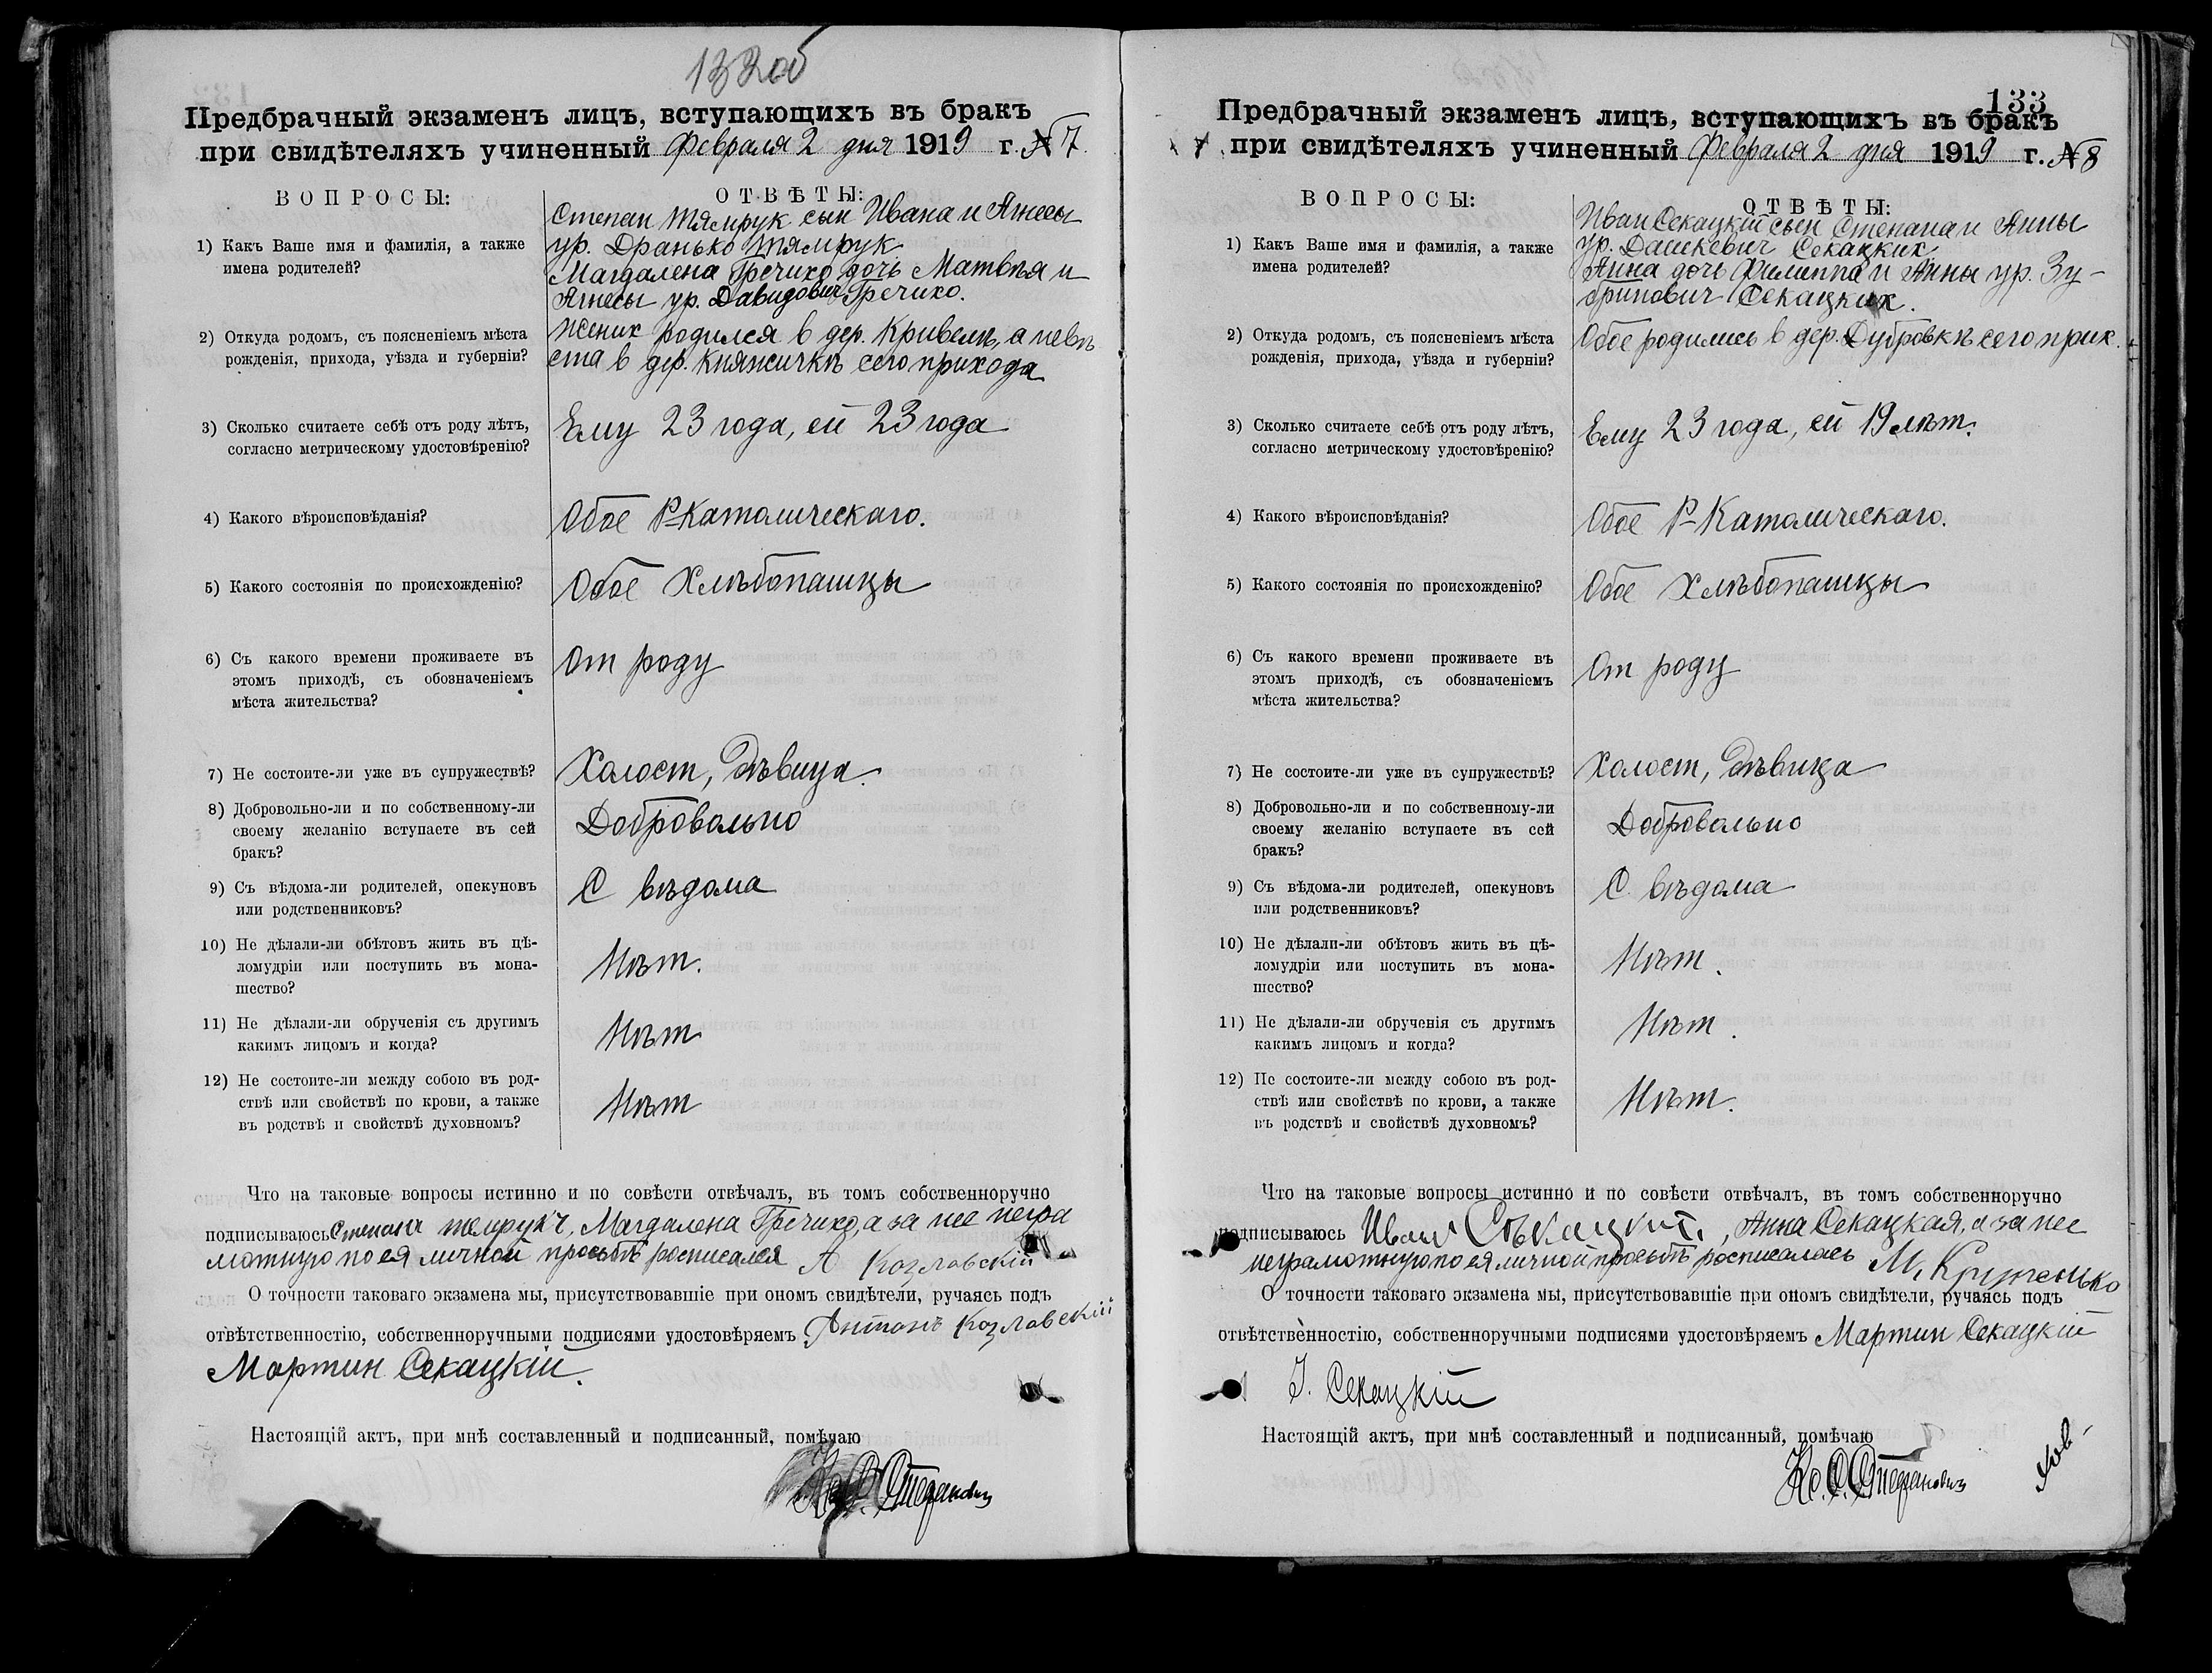 132об
Предбрачный экзаменъ лицъ, вступающихъ въ бракъ
при свидѣтеляхъ учиненный Февраля 2 дня 1919 г. №7.
ВОПРОСЫ:
ОТВѢТЫ:
1) Какъ Ваше имя и фамилія, а также
имена родителей?
Степан Тямрук сын Ивана и Агнесы
ур. Дранько Тямрук
Магдалена Гречихо дочь Матвѣя и
Агнесы ур. Давидович Гречихо.
2) Откуда родомъ, съ поясненіемъ мѣста
рожденія, прихода, уѣзда и губерніи?
Жених родился в дер. Кривелѣ, а невѣ
ста в дер. Княжичкѣ сего прихода
3) Сколько считаете себѣ отъ роду лѣтъ,
согласно метрическому удостовѣренію?
Ему 23 года, ей 23 года
4) Какого вѣроисповѣданія?
Обое Р-Католическаго.
5) Какого состоянія по происхожденію?
Обое Хлѣбопашцы
6) Съ какого времени проживаете въ
этомъ приходѣ, съ обозначеніемъ
мѣста жительства?
От роду
7) Не состоите-ли уже въ супружествѣ?
Холост, Дѣвица.
8) Добровольно-ли и по собственному-ли
своему желанію вступаете въ сей
бракъ?
Добровольно
9) Съ вѣдома-ли родителей, опекуновъ
или родственниковъ?
С вѣдома
10) Не дѣлали-ли обѣтовъ жить въ цѣ-
ломудріи или поступить въ мона-
шество?
Нѣт.
11) Не дѣлали-ли обрученія съ другимъ
какимъ лицомъ и когда?
Нѣт
12) Не состоите-ли между собою въ род-
ствѣ или свойствѣ по крови, а также
въ родствѣ и свойствѣ духовномъ?
Нѣт
Что на таковые вопросы истинно и по совѣсти отвѣчалъ, въ томъ собственноручно
подписываюсь Степанъ темрукъ, Магдалена Гречихо, а за нее негра
мотную по ея личной просьбѣ росписался А Козловскій
О точности таковаго экзамена мы, присутствовавшіе при ономъ свидѣтели, ручаясь подъ
отвѣтственностію, собственноручными подписями удостовѣряемъ Антонъ Козловскій
Мартин Секацкій.
Настоящій актъ, при мнѣ составленный и подписанный, помѣчаю
Кс. С. Стефанович
133
Предбрачный экзаменъ лицъ, вступающихъ въ бракъ
при свидѣтеляхъ учиненный Февраля 2 дня 1919 г. №8
ВОПРОСЫ:
ОТВѢТЫ:
1) Какъ Ваше имя и фамилія, а также
имена родителей?
Иван Секацкій сын Степана и Анны
ур. Дашкевич Секацких
Анна дочь Филиппа и Анны ур. Зу-
бринович Секацких.
2) Откуда родомъ, съ поясненіемъ мѣста
рожденія, прихода, уѣзда и губерніи?
Обое родились в дер. Дубровкѣ сего прих.
3) Сколько считаете себѣ отъ роду лѣтъ,
согласно метрическому удостовѣренію?
Ему 23 года, ей 19 лѣт.
4) Какого вѣроисповѣданія?
Обое Р-Католическаго.
5) Какого состоянія по происхожденію?
Обое Хлѣбопашцы
6) Съ какого времени проживаете въ
этомъ приходѣ, съ обозначеніемъ
мѣста жительства?
От роду
7) Не состоите-ли уже въ супружествѣ?
Холост, Дѣвица
8) Добровольно-ли и по собственному-ли
своему желанію вступаете въ сей
бракъ?
Добровольно
9) Съ вѣдома-ли родителей, опекуновъ
или родственниковъ?
С вѣдома
10) Не дѣлали-ли обѣтовъ жить въ цѣ-
ломудріи или поступить въ мона-
шество?
Нѣт.
11) Не дѣлали-ли обрученія съ другимъ
какимъ лицомъ и когда?
Нѣт.
12) Не состоите-ли между собою въ род-
ствѣ или свойствѣ по крови, а также
въ родствѣ и свойствѣ духовномъ?
Нѣт.
Что на таковые вопросы истинно и по совѣсти отвѣчалъ, въ томъ собственноручно
подписываюсь Иван , Анна Секацкая, а за нее
неграмотную по ея личной просьбѣ росписалась М.
О точности таковаго экзамена мы, присутствовавшіе при ономъ свидѣтели, ручаясь подъ
отвѣтственностію, собственноручными подписями удостовѣряемъ Мартин Секацкій
І. Секацкій
Настоящій актъ, при мнѣ составленный и подписанный, помѣчаю
Кс. С. Стефанович